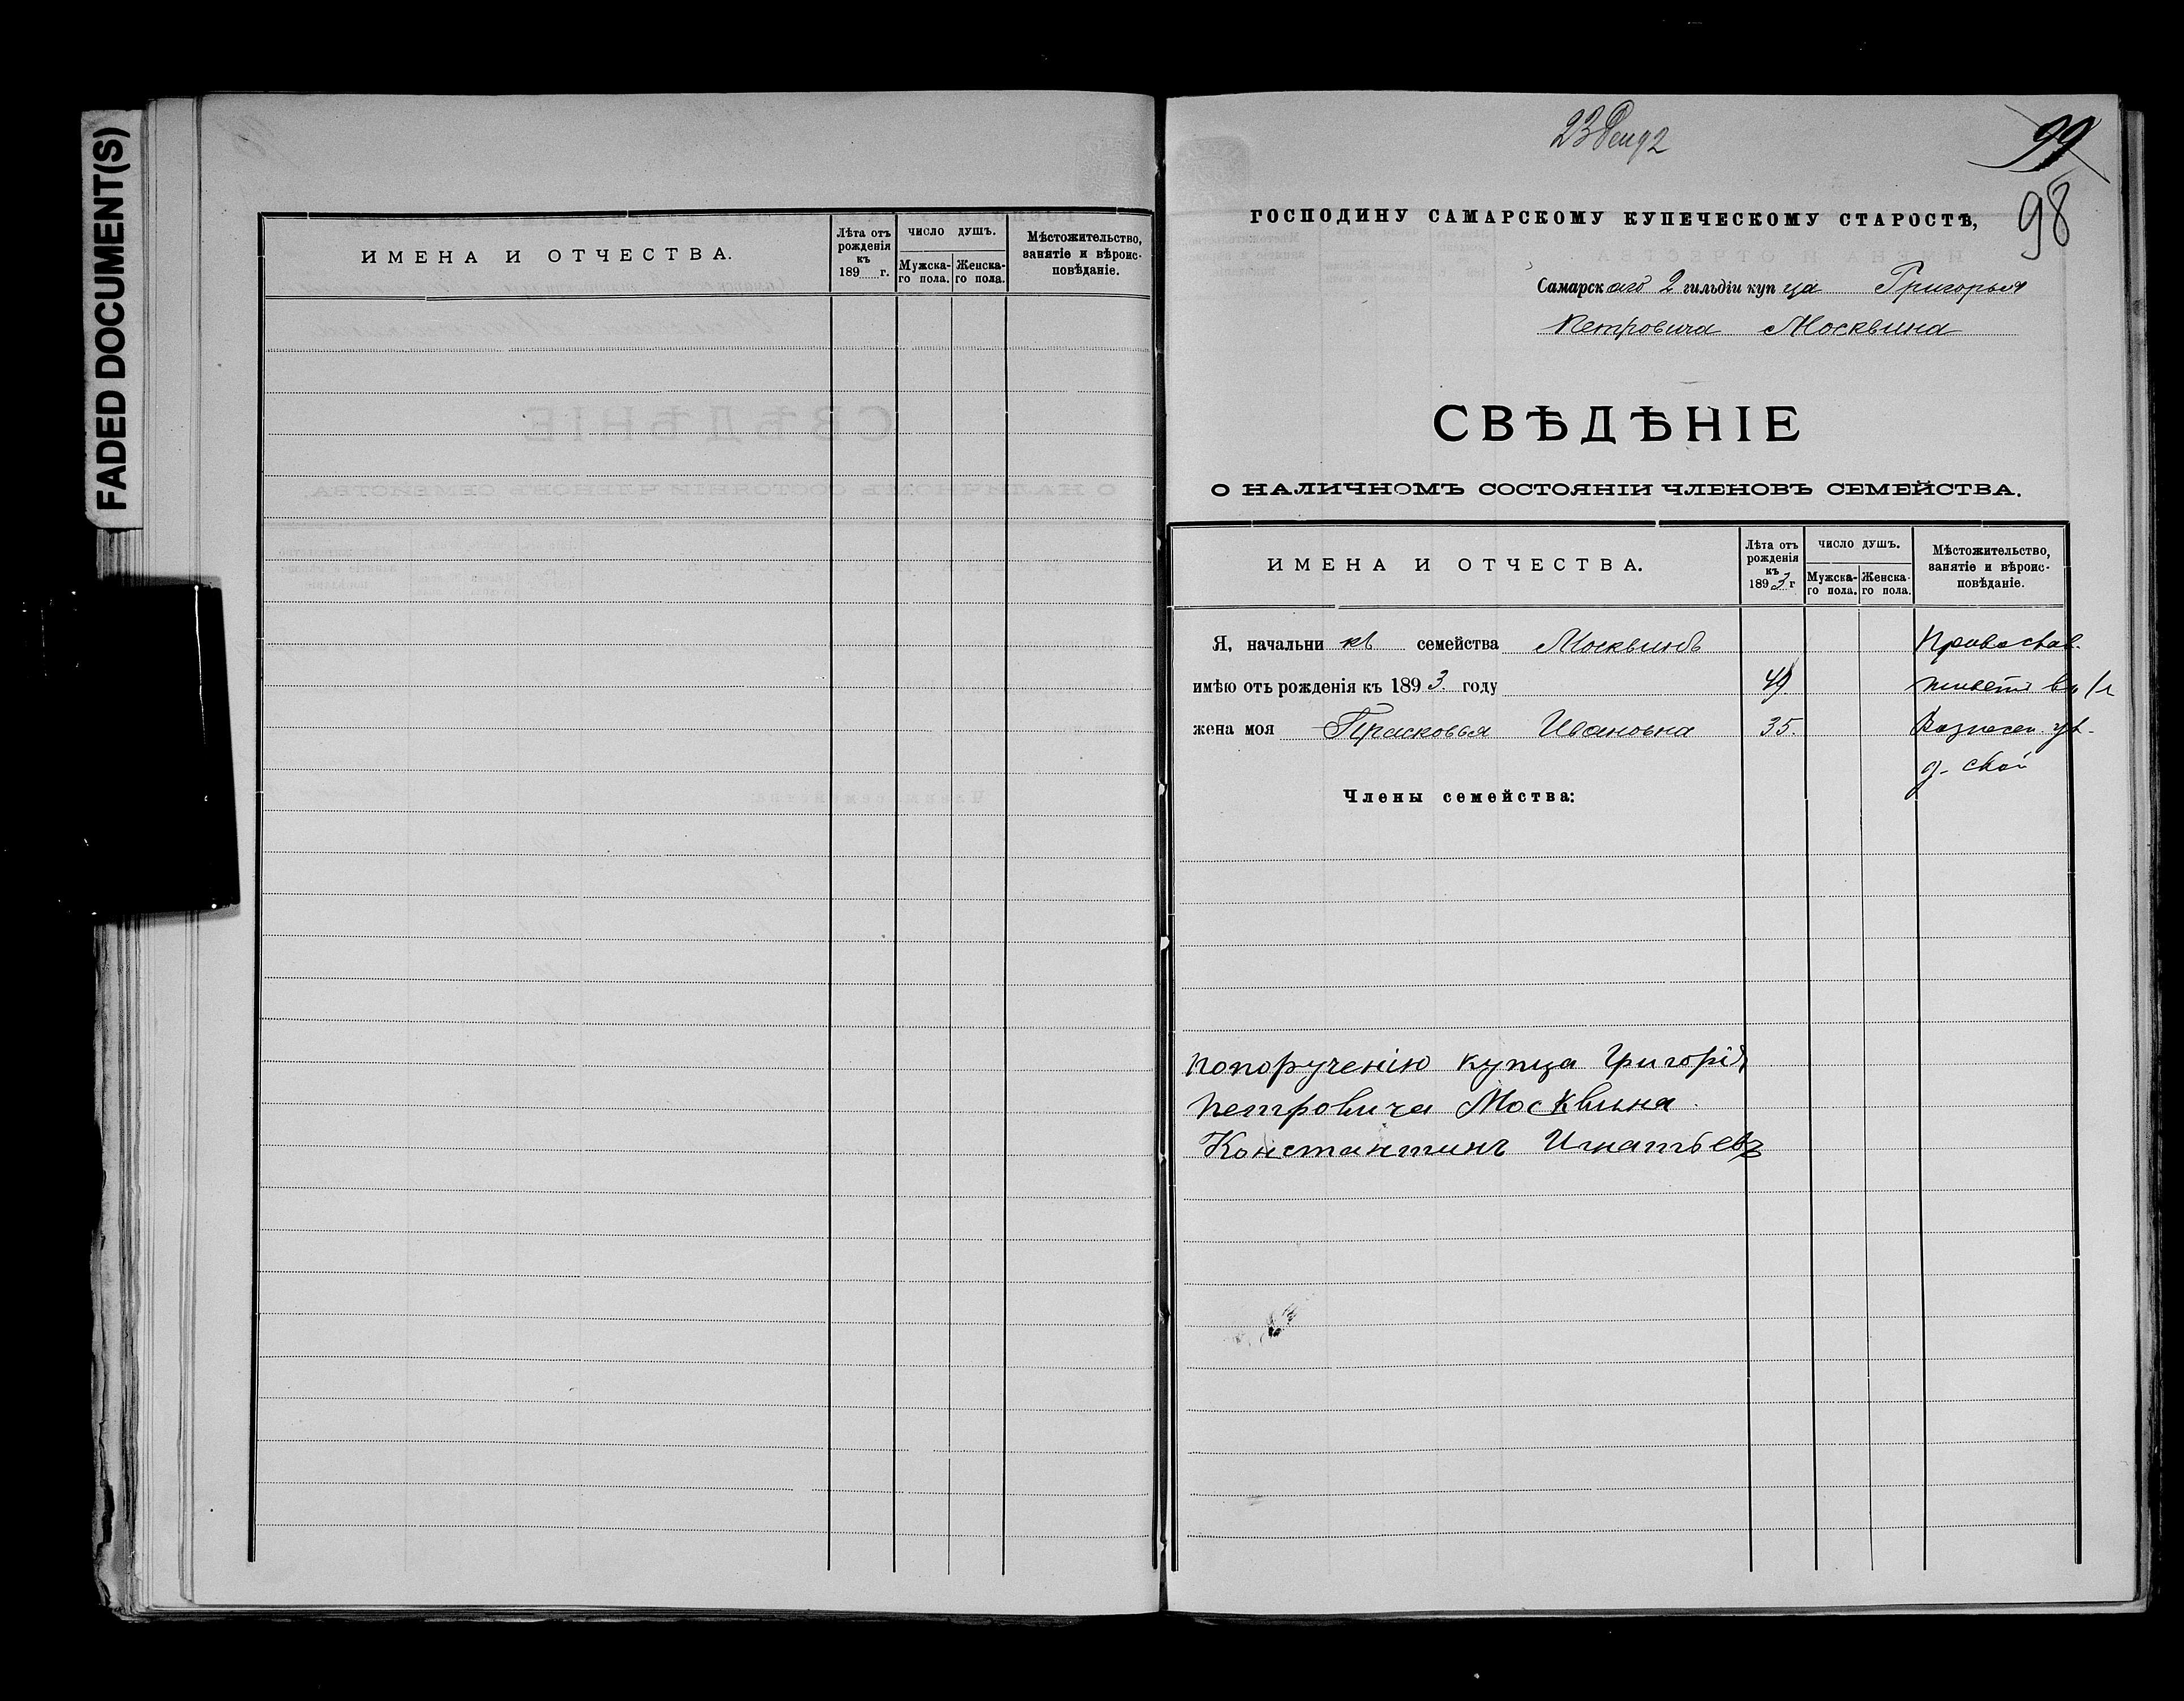 FADED DOCUMENT(S)
ИМЕНА И ОТЧЕСТВА.
Лѣта отъ рожденія къ 189 г.
ЧИСЛО ДУШЪ.
Мужска-го пола.
Женска-го пола.
Мѣстожительство, занятіе и вѣроис-повѣданіе.
99
98
ГОСПОДИНУ САМАРСКОМУ КУПЕЧЕСКОМУ СТАРОСТѢ,
Самарскаго 2 гильдіи купца Григорья
Петровича Москвина
СВѢДѢНІЕ
О НАЛИЧНОМЪ СОСТОЯНІИ ЧЛЕНОВЪ СЕМЕЙСТВА.
ИМЕНА И ОТЧЕСТВА.
Лѣта отъ рожденія къ 1893 г
ЧИСЛО ДУШЪ.
Мужска-го пола.
Женска-го пола.
Мѣстожительство, занятіе и вѣроис-повѣданіе.
Я, начальникъ семейства Москвинъ Православ.
имѣю отъ рожденія къ 1893 году 49
жена моя Прасковья Ивановна 35.
Члены семейства:
попорученію купца Григорія
Петровича Москвина
Константинъ Игнатьевъ